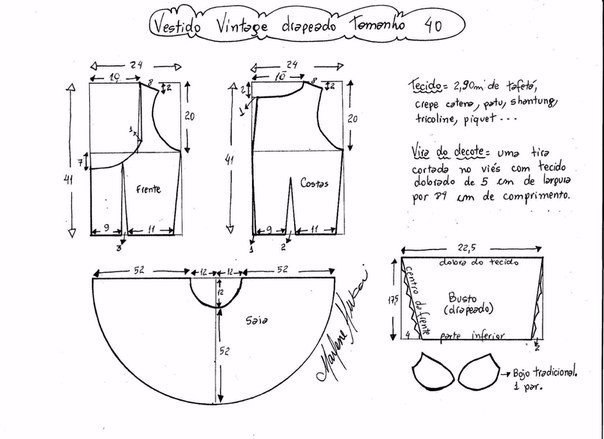 Vestido Vintage drapeado Tamanho 40
24
10
8
2
20
3
7
41
Frente
9
11
3
24
10
8
2
2
1
20
41
Costas
9
11
1
2
Tecido = 2,90m de tafetá,
crepe catena, patu, shantung,
tricoline, piquet ...
Vira do decote = uma tira
cortada no viés com tecido
dobrado de 5 cm de largura
por 79 cm de comprimento.
52
12
12
52
12
Saia
52
Marlene Mukai
22,5
dobra do tecido
centro da frente
17,5
Busto
(drapeado)
4
parte inferior
2
Bojo tradicional.
1 par.